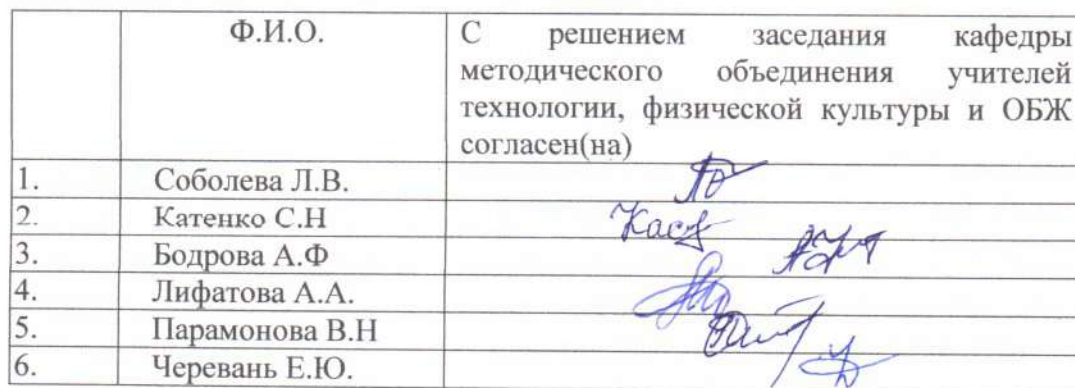 Ф.И.О.
С решением заседания кафедры
методического объединения учителей
технологии, физической культуры и ОБЖ
согласен(на)
1. Соболева Л.В.
2. Катенко С.Н
3. Бодрова А.Ф
4. Лифатова А.А.
5. Парамонова В.Н
6. Черевань Е.Ю.